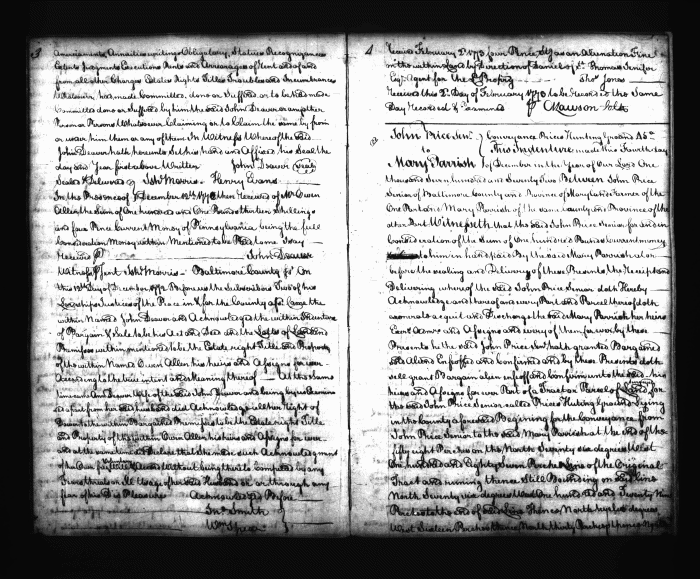 3
Amerciaments Annuities writings Obligatory, Statues Recognizances
Extents Judgments Executions Rents and Arrearages of Rent and of and
from all other Charges Estates Rights Titles Troubles and Incumbrances
Whatsoever had made Committed, done or Suffered or to be had made
Committed done or Suffered by him the said John Deaver or any other
Person or Persons Whatsoever Claiming or to Claim the same by from
or under him them or any of them In Witness Whereof the said
John Deaver hath hereunto Set his hand and Affixed his Seal the
day and Year first above Written John Deaver (Seal)
Sealed & Delivered Jno Morris - Henry Evans
In the Province of December 12th 1772 Then Received of Mr Owen
Allen the Sum of One hundred and One Pounds thirteen Shillings
and four Pence Current Money of Pennsylvania being the full
Consideration Money within Mentioned to be Paid to me I say
Received John Deaver
Witness Present Jno Morris - Baltimore County ss On
this 12th Day of December 1772 Before us the Subscribers Two of his
Lordships Justices of the Peace in & for the County afd Came the
within Named John Deaver and Acknowledged the within Indenture
of Bargain & Sale to be his Act and Deed and the Lands and
Premisses within mentioned to be the Estate right Title and Property
of the within Named Owen Allen his heirs and Assigns for ever
According to the true intent and Meaning thereof At the Same
time Ann Deaver Wife of the said John Deaver being
apart from her said husband did Acknowledge all her Right of
Dower to the within Bargained Premisses to be the Estate right Title
and Property of the within Owen Allen his heirs and Assigns for ever
and at the same time Declares that She made such Acknowledgment
of her Own free Will and Accord Without being thereto Compelled by any
Threats thereat or Ill Usage of her said Husband or through any
fear of his Displeasure Acknowledged Before
Jno Smith
Wm Spear
4
Received February 2d 1773 four Pence Stg as an Alienation Fine
within Land by Direction of Daniel of St Thomas Jenifer
Esqr Agent for the Ld Propry Thos Jones
Received this 2d Day of February 1773 to be Recorded the Same
Day Recorded & Examined A Lawson Clk
John Price Senr Conveyance Prices Hunting Ground
to This Indenture made this Fourth day
Mary Parrish of December in the Year of Our Lord One
thousand Seven hundred and Seventy Two Between John Price
Senior of Baltimore County and Province of Maryland Farmer of the
One Part and Mary Parrish of the same County and Province of the
other Part Witnesseth that the said John Price Senior for and in
Consideration of the Sum of One hundred Pounds Current money
to him in hand Paid By the said Mary Parrish at or
before the sealing and Delivery of these Presents the Receipt and
Delivering where of the said John Price Senior doth Hereby
Acknowledge and thereof and every Part and Parcel thereof doth
exonerate acquit and Discharge the said Mary Parrish her heirs
Exrs Admrs and Assigns and every of them for ever by these
Presents he the said John Price Senr hath granted Bargained
and Aliened Enfeoffed and Confirmed and by these Presents doth
sell grant Bargain alien enfeoff and Confirm unto the said
heirs and Assigns for ever Part of a Tract or Parcel of Land for
the said John Price Senior called Prices Hunting Ground Lying
in the County aforesaid Begining for the Conveyance from
John Price Senior to the said Mary Parrish at the end of the
fifty eight Perches on the North Seventy six degrees West
One hundred and Eighty Seven Perches Line of the Original
Tract and runing thence Still Bounding on said line
North Seventy six degrees West One hundred and Twenty Nine
Perches to the end of said Line Thence North twelve degrees
West Sixteen Perches thence North thirty Perches thence North